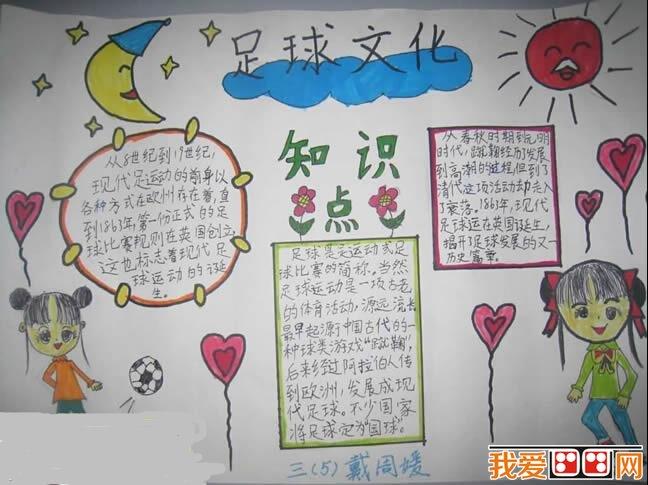 足球文化
知识
点
从8世纪到19世纪,
现代足运动的前身以
各种方式在欧洲存在着,直
到1863年,第一份正式的足
球比赛规则在英国创立,
这也标志着现代足
球运动的诞
生。
足球是足运动或足
球比赛的简称。当然
足球运动是一项古老
的体育活动,源远流长
最早起源于中国古代的一
种球类游戏“蹴鞠”,
后来经过阿拉伯人传
到欧洲,发展成现
代足球。不少国家
将足球定为“国球”。
从春秋时期到元明
时代,蹴鞠经历发展
到高潮的进程但到了
清代这项活动却走入
了衰落。1863年,现代
足球运在英国诞生,
揭开了足球发展的又一
历史篇章。
三(5)戴周媛
我爱网